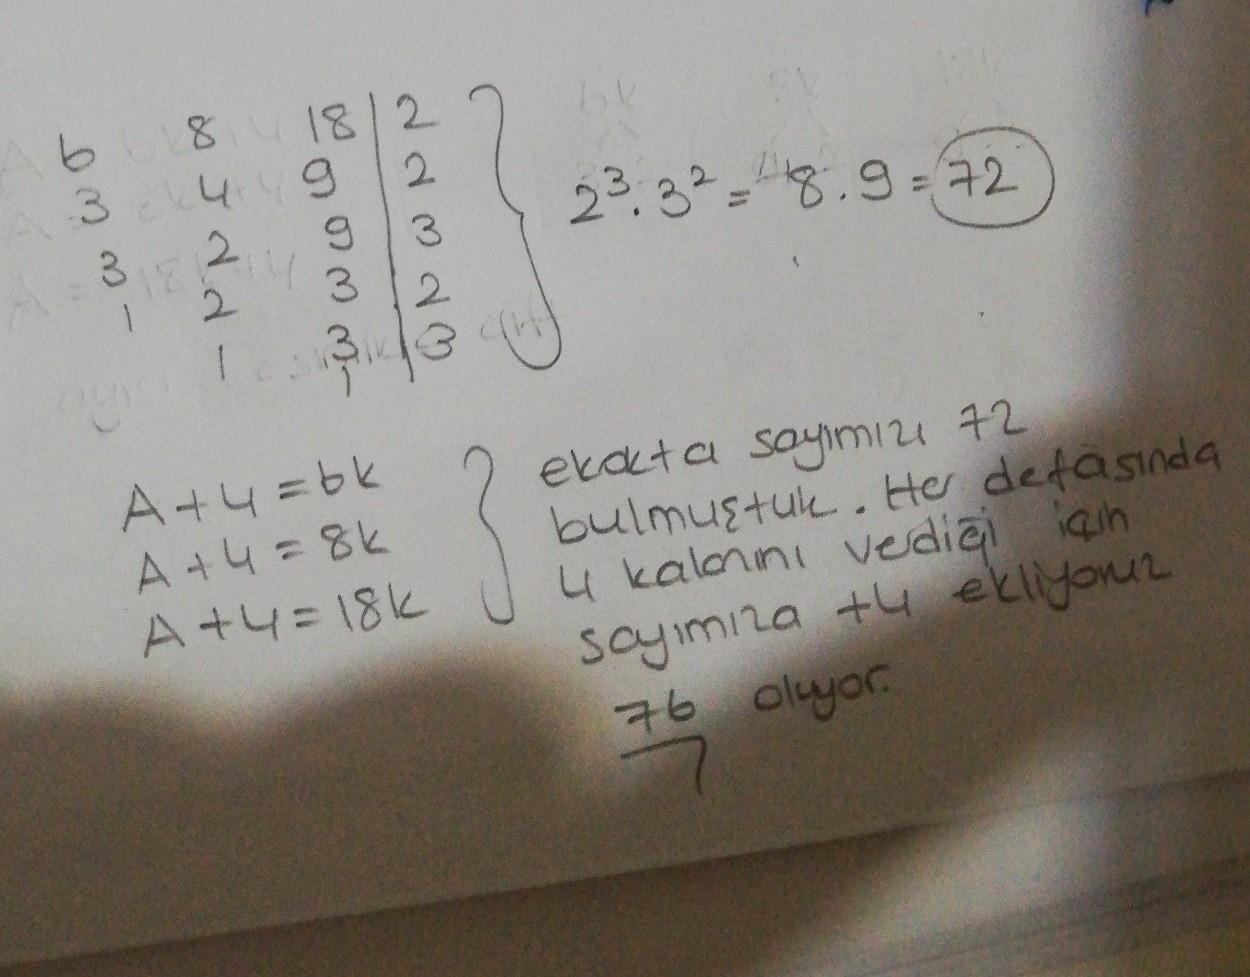 6 8 18 | 2
3 4 9 | 2
3 2 9 | 3
1 2 3 | 2
1 3 | 3
1
2³.3² = 8.9 = 72
A+4 = 6k
A+4 = 8k
A+4 = 18k
ekokta sayımızı 72
bulmuştuk. Her defasında
4 kalanını verdiği için
sayımıza +4 ekliyoruz
76 oluyor.